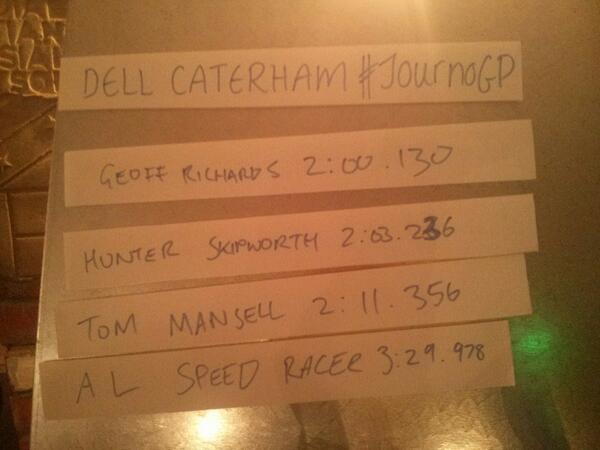 DELL CATERHAM #JournoGP
GEOFF RICHARDS 2:00.130
HUNTER SKIPWORTH 2:03.236
TOM MANSELL 2:11.356
AL SPEED RACER 3:29.978